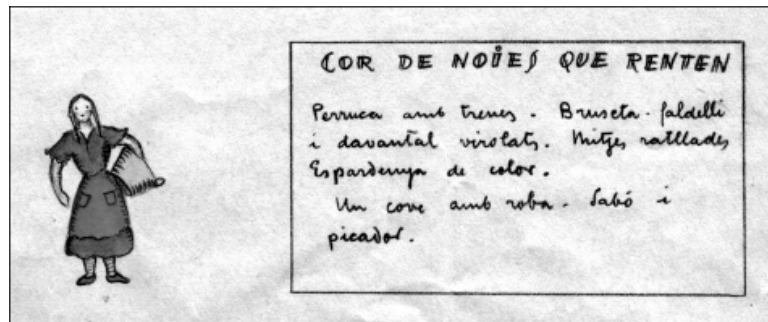 COR DE NOIES QUE RENTEN
Perruca amb trenes. Bruseta. faldelli
i davantal virolats. Mitjes ratllades
Espardenya de color.
Un cove amb roba. Sabó i
picador.